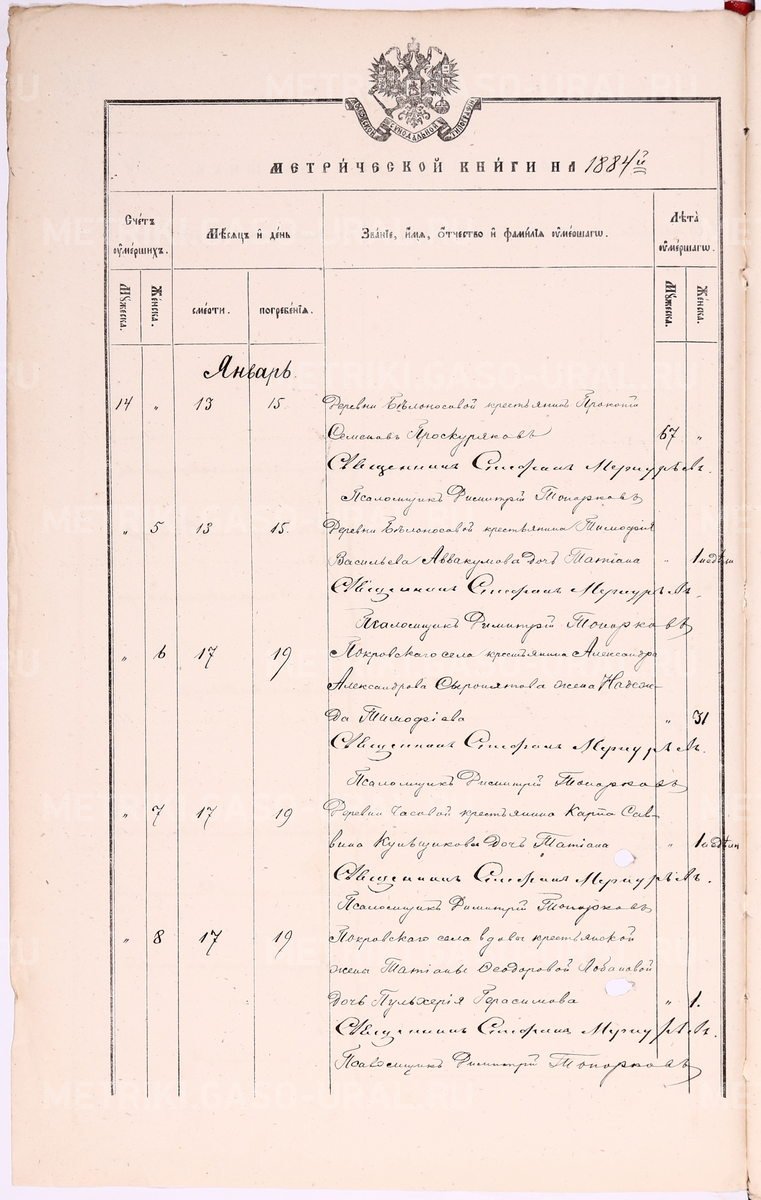 МЕТРИЧЕСКОЙ КНИГИ НА 1884й
Счетъ оумершихъ.
Мѣсяцъ и день
Званіе, имя, отчество и фамилія оумершагω.
Лѣта оумершагω.
Мужеска.
Женска.
смерти.
погребенія.
Мужеска.
Женска.
Январь
14 " 13 15. Деревни Бѣлоносовой крестьянинъ Прокопій
Семеновъ Проскуряковъ 67 "
Священникъ Стефанъ Меркурьевъ.
Псаломщикъ Димитрій Топорковъ
" 5 13 15. Деревни Бѣлоносовой крестьянина Тимофея
Васильева Аввакумова дочь Татіана " 1 недѣли
Священникъ Стефанъ Меркурьевъ.
Псаломщикъ Димитрій Топорковъ
" 6 17 19 Покровскаго села крестьянина Александра
Александрова Сыропятова жена Надеж-
да Тимофіева " 31
Священникъ Стефанъ Меркурьевъ.
Псаломщикъ Димитрій Топорковъ
" 7 17 19 Деревни Часовой крестьянина Карпа Сав-
вина Кунщикова дочь Татіана " 1 недѣли
Священникъ Стефанъ Меркурьевъ.
Псаломщикъ Димитрій Топорковъ
" 8 17 19 Покровскаго села вдовы крестьянской
жены Татіаны Ѳеодоровой Лобановой
дочь Пульхерія Герасимова " 1.
Священникъ Стефанъ Меркурьевъ.
Псаломщикъ Димитрій Топорковъ
METRIKI.GASO-URAL.RU